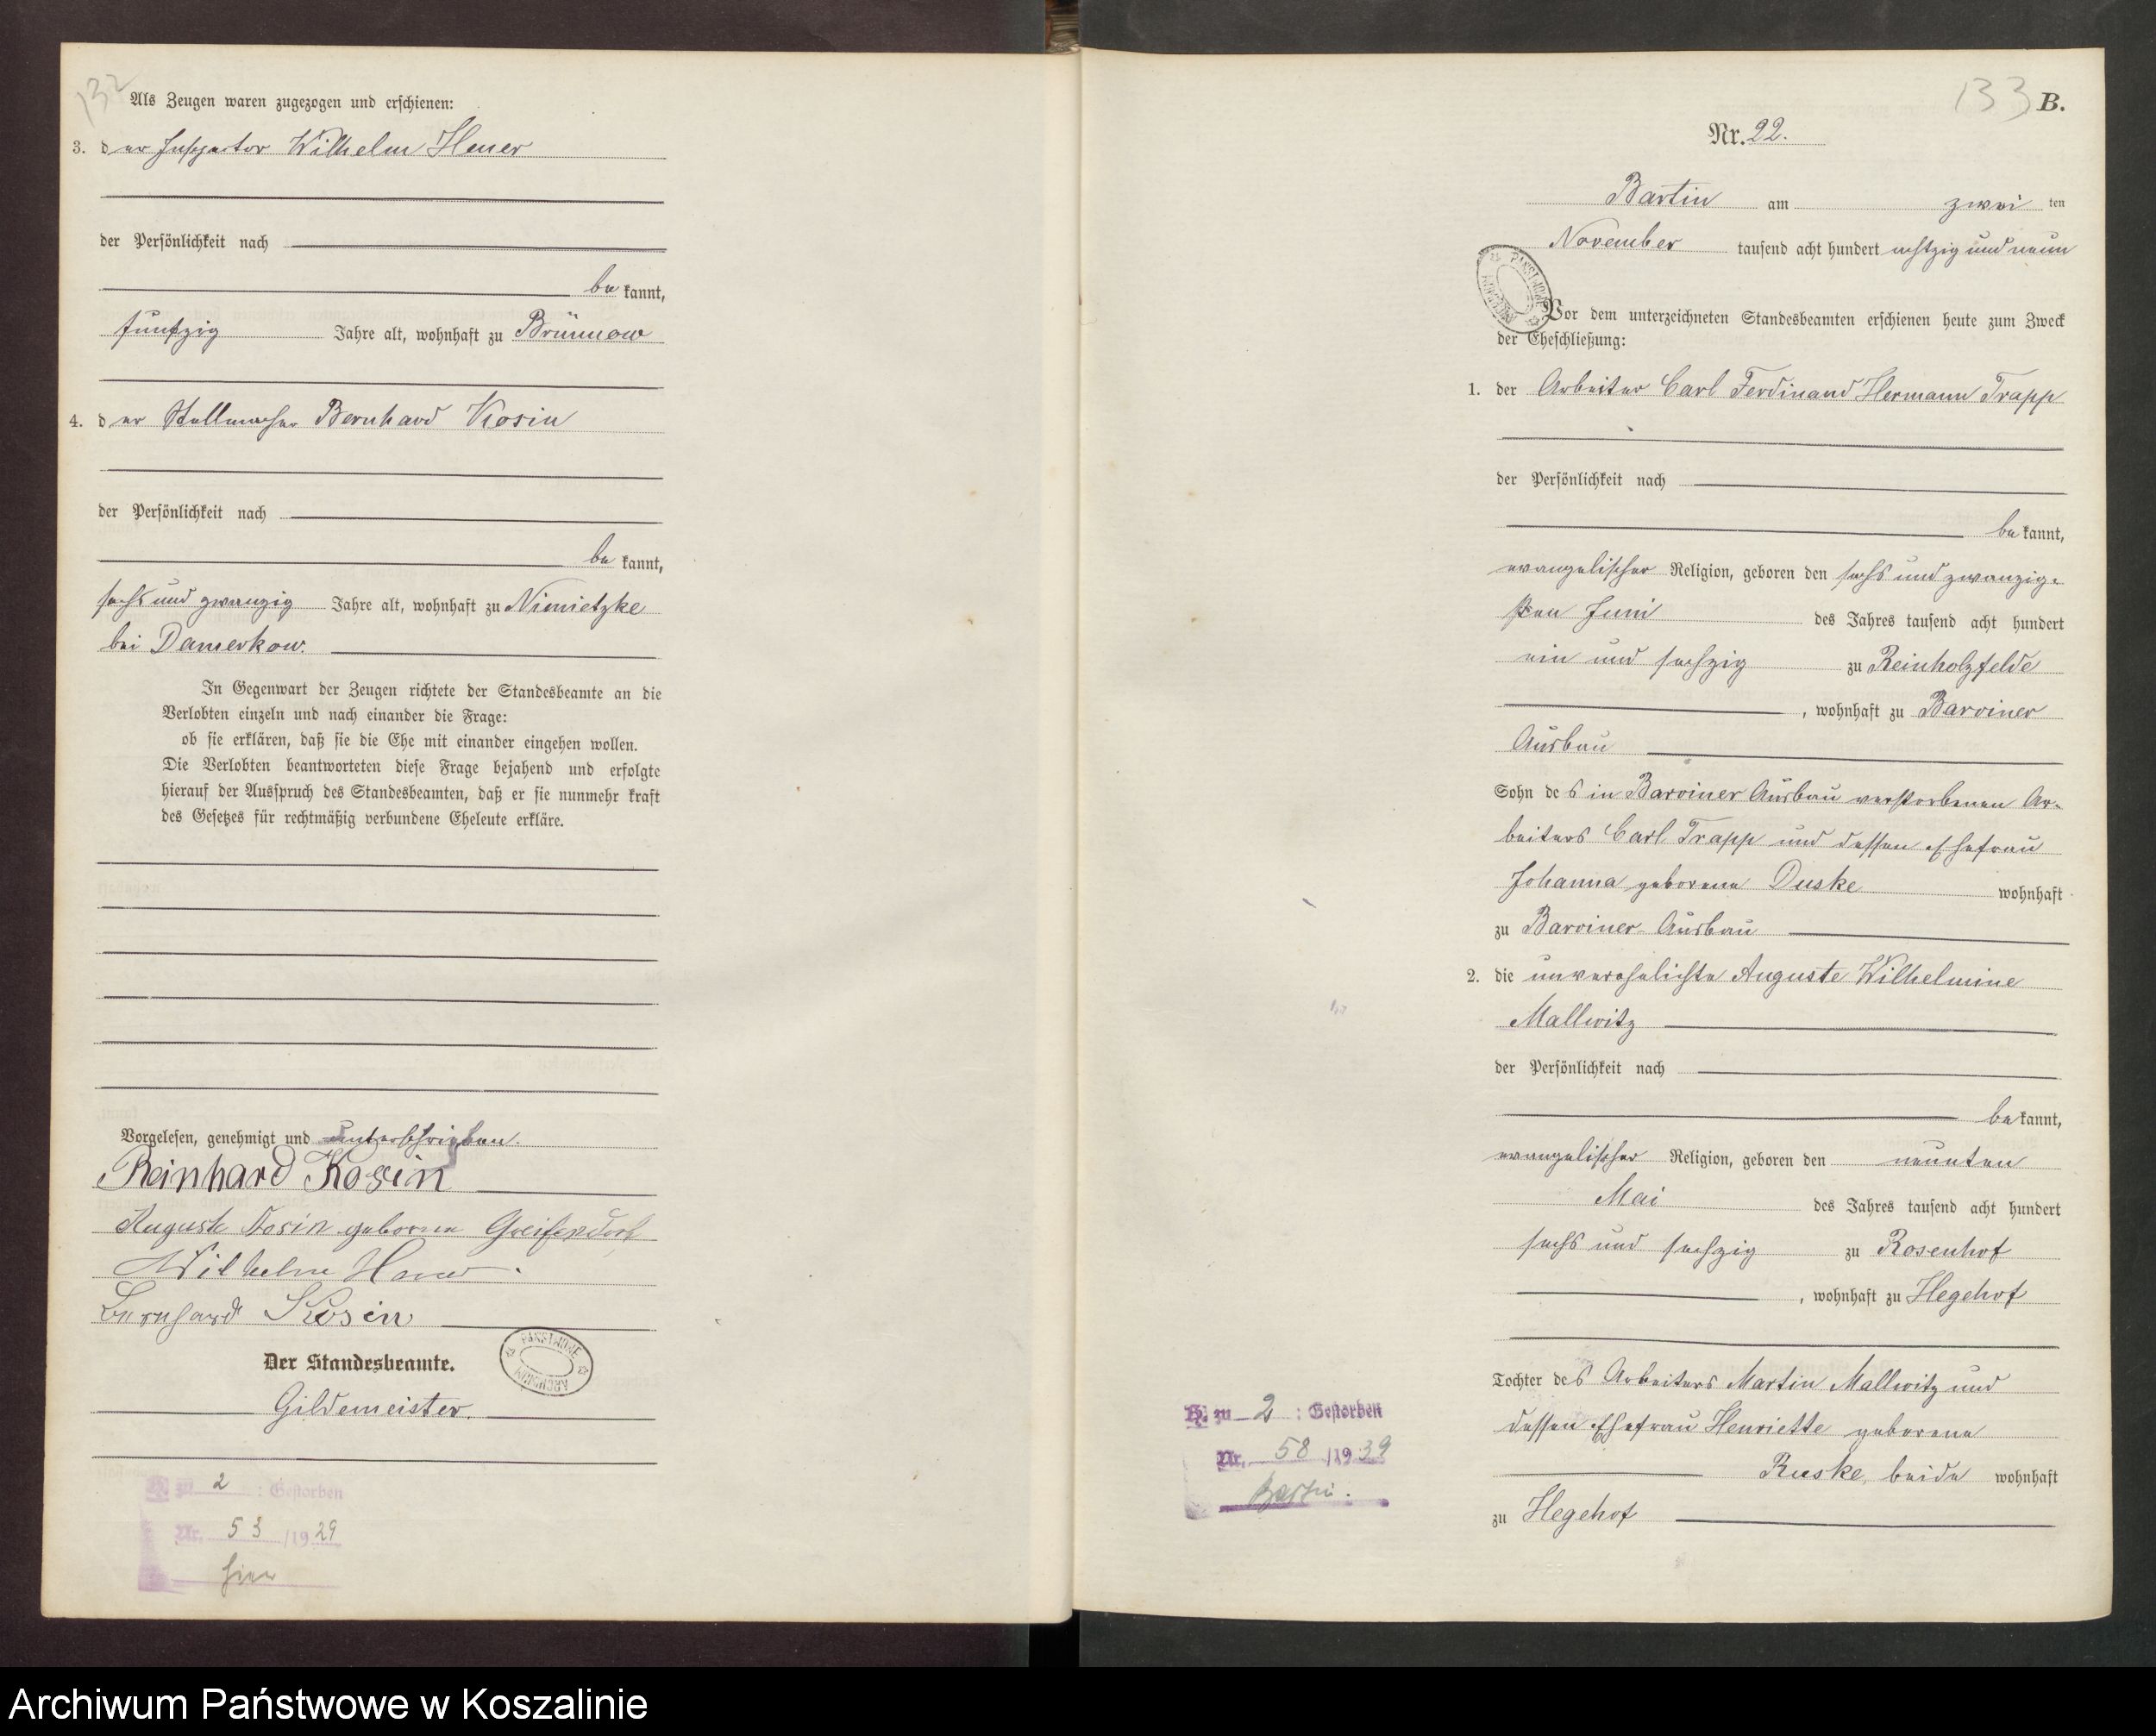 132
Als Zeugen waren zugezogen und erschienen:
3. der Inspektor Wilhelm Heuer
der Persönlichkeit nach
bekannt,
fünfzig Jahre alt, wohnhaft zu Brünnow
4. der Stellmacher Bernhard Kosin
der Persönlichkeit nach
bekannt,
sechs und zwanzig Jahre alt, wohnhaft zu Nimietzke
bei Damerkow.
In Gegenwart der Zeugen richtete der Standesbeamte an die
Verlobten einzeln und nach einander die Frage:
ob sie erklären, daß sie die Ehe mit einander eingehen wollen.
Die Verlobten beantworteten diese Frage bejahend und erfolgte
hierauf der Ausspruch des Standesbeamten, daß er sie nunmehr kraft
des Gesetzes für rechtmäßig verbundene Eheleute erkläre.
Vorgelesen, genehmigt und unterschrieben.
Reinhard Kosin
Auguste Kosin geborene Greifendorf
Wilhelm
Bernhard Kosin
Der Standesbeamte.
PAŃSTWOWE ARCHIWUM
Gildemeister.
H. zu 2 : Gestorben
Nr. 53 /1929
hier
133 B.
Nr. 22.
Bartin am zweiten
November tausend acht hundert achtzig und neun
PAŃSTWOWE ARCHIWUM
Vor dem unterzeichneten Standesbeamten erschienen heute zum Zweck
der Eheschließung:
1. der Arbeiter Carl Ferdinand Hermann Trapp
der Persönlichkeit nach
bekannt,
evangelischer Religion, geboren den sechs und zwanzig-
sten Juni des Jahres tausend acht hundert
ein und sechzig zu Reinholzfelde
, wohnhaft zu Barviner
Ausbau
Sohn des in Barviner Ausbau verstorbenen Ar-
beiters Carl Trapp und dessen Ehefrau
Johanna geborene Duske wohnhaft
zu Barviner-Ausbau
2. die unverehelichte Auguste Wilhelmine
Mallwitz
der Persönlichkeit nach
bekannt,
evangelischer Religion, geboren den neunten
Mai des Jahres tausend acht hundert
sechs und sechzig zu Rosenhof
, wohnhaft zu Hegehof
Tochter des Arbeiters Martin Mallwitz und
dessen Ehefrau Henriette geborene
Ruske, beide wohnhaft
zu Hegehof
H. zu 2 : Gestorben
Nr. 58 /1939
Bartin.
Archiwum Państwowe w Koszalinie